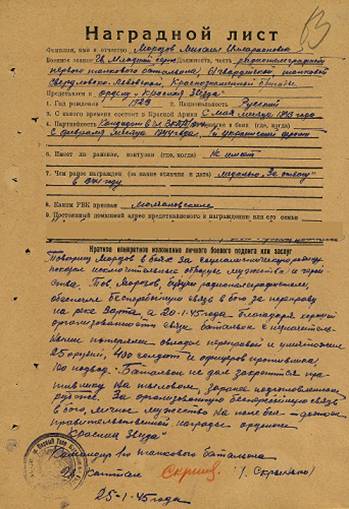 Наградной лист
Фамилия, имя и отчество Морозов Михаил
Военное звание гв. Младший серж. Должность, часть радиотелеграфист
первого танкового батальона, 61 гвардейской танковой
Свердловско-Львовской, Краснознаменной бригады
Представлен к ордену "Красная Звезда"
1. Год рождения 2. Национальность Русский
3. С какого времени состоит в Красной Армии С мая месяца 1943 года
4. Партийность Кандидат в боях (где, когда)
С февраля месяца 1944 года, 1й украинский фронт
6. Имеет ли ранения, контузии (где, когда) Не имеет
7. Чем ранее награжден (за какие отличия) медалью "За отвагу"
в году
8. Каким РВК призван
9. Постоянный домашний адрес представляемого к награждению или его семьи
Краткое конкретное изложение личного боевого подвига или заслуг
Товарищ Морозов в боях за социалистическую родину
показал исключительные образцы мужества и герой-
ства. Тов. Морозов, будучи радиотелеграфистом,
обеспечил бесперебойную связь в бою за переправу
на реке Варта, а 20-1-45 года благодаря хорошей
организованности связи батальон с незначитель-
ными потерями овладел переправой и уничтожил
25 орудий, 400 солдат и офицеров противника,
100 подвод. Батальон не дал закрепится про-
тивнику на тыловом, заранее подготовленном
рубеже. За организованную бесперебойную связь
в бою, личное мужество на поле боя - достоин
правительственной награды ордена
"Красная Звезда"
Командир 1го танкового батальона
гв. капитан
25-1-45 года